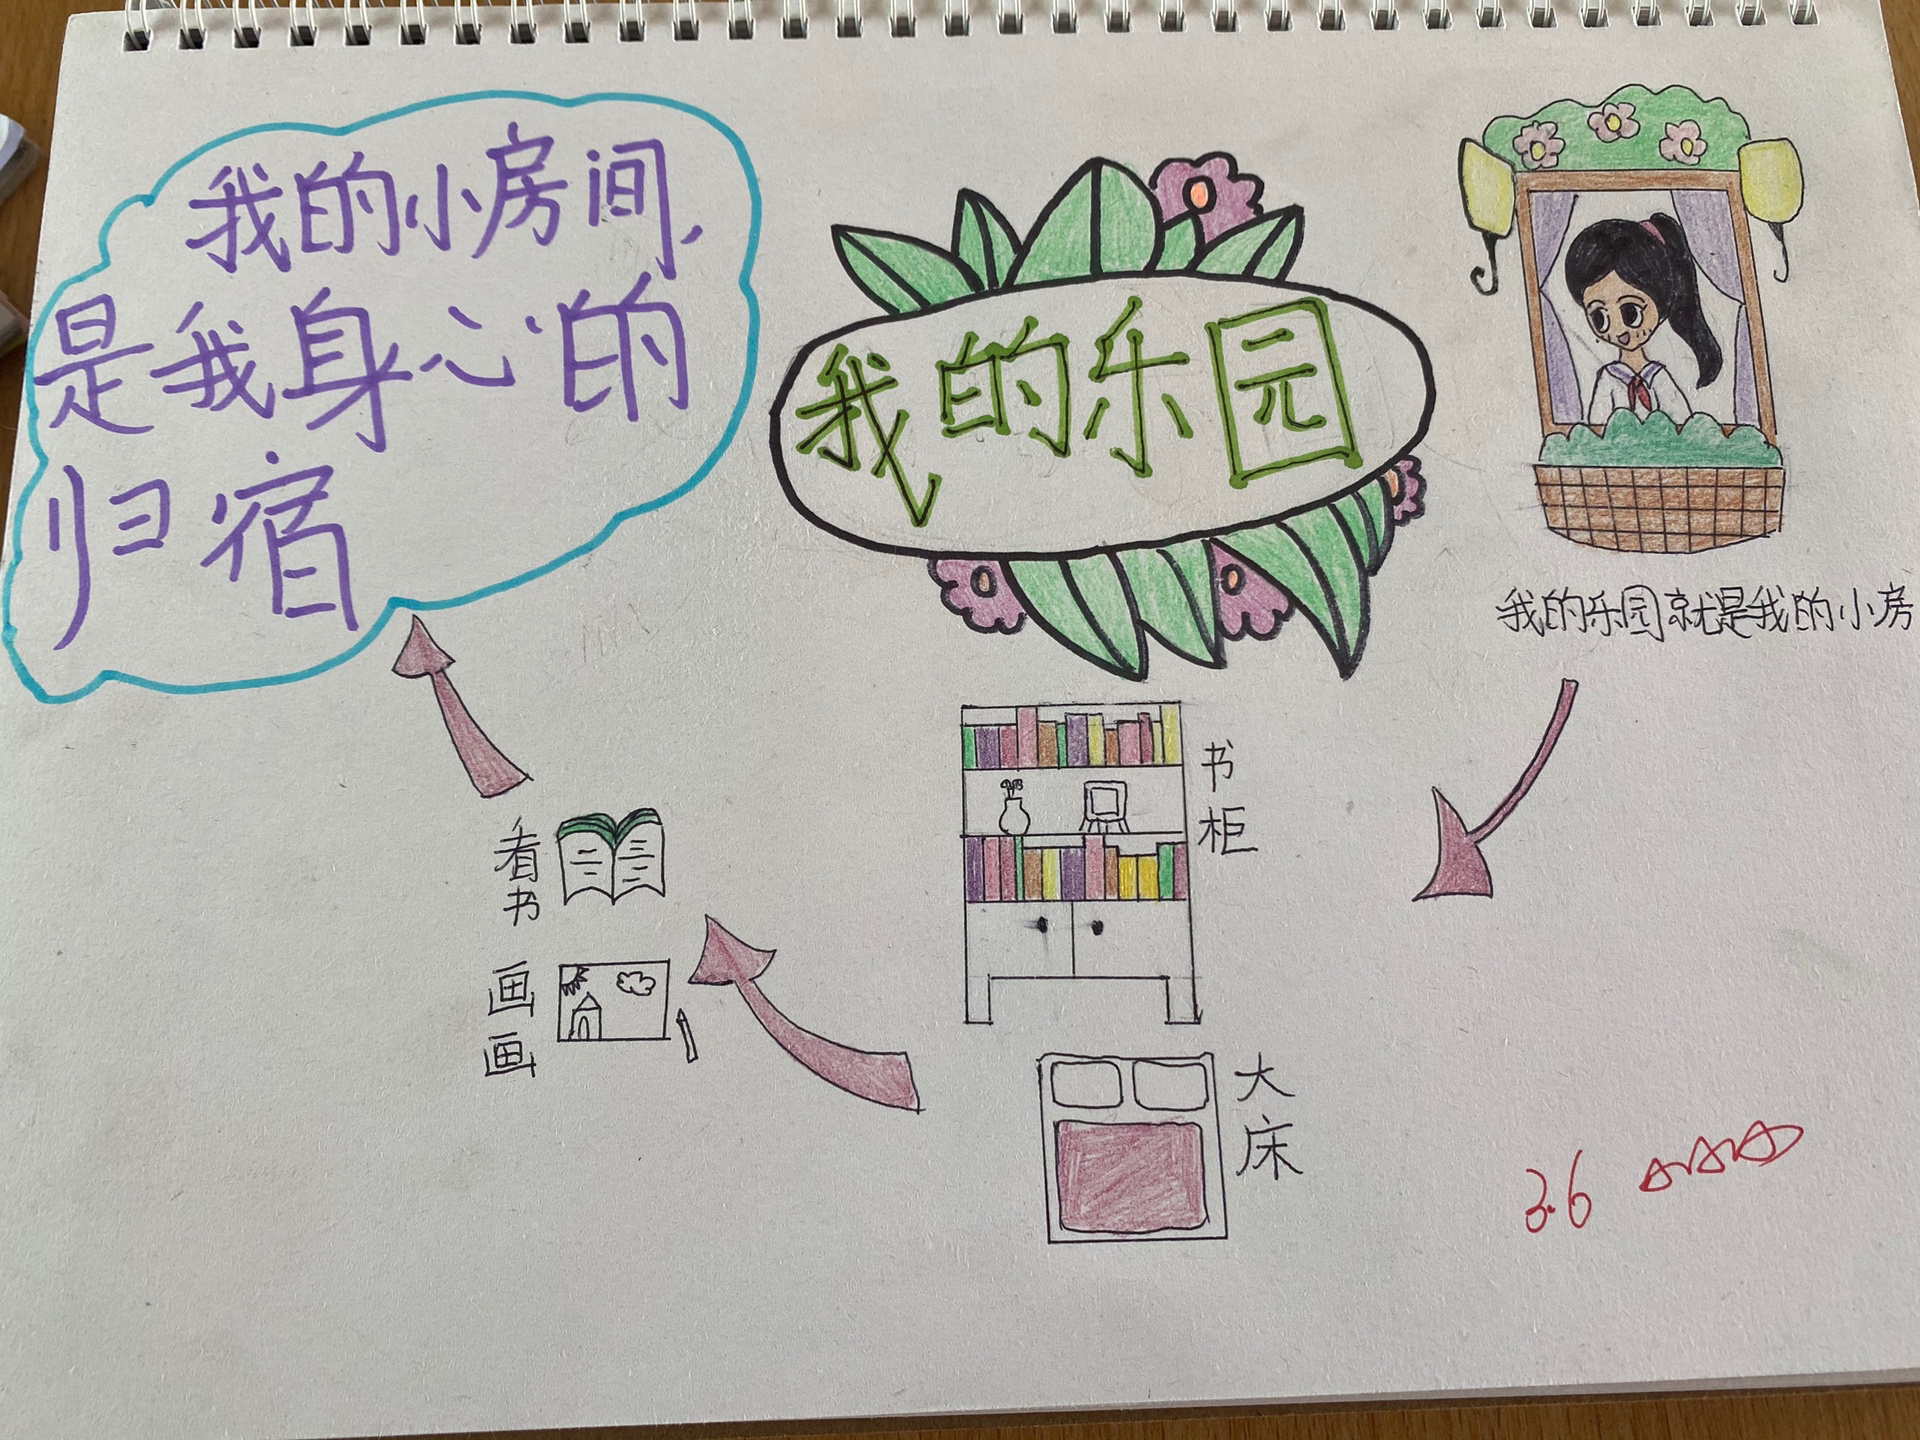 我的小房间,
是我身心的
归宿
我的乐园
我的乐园就是我的小房
书柜
大床
看书
画画
3.6